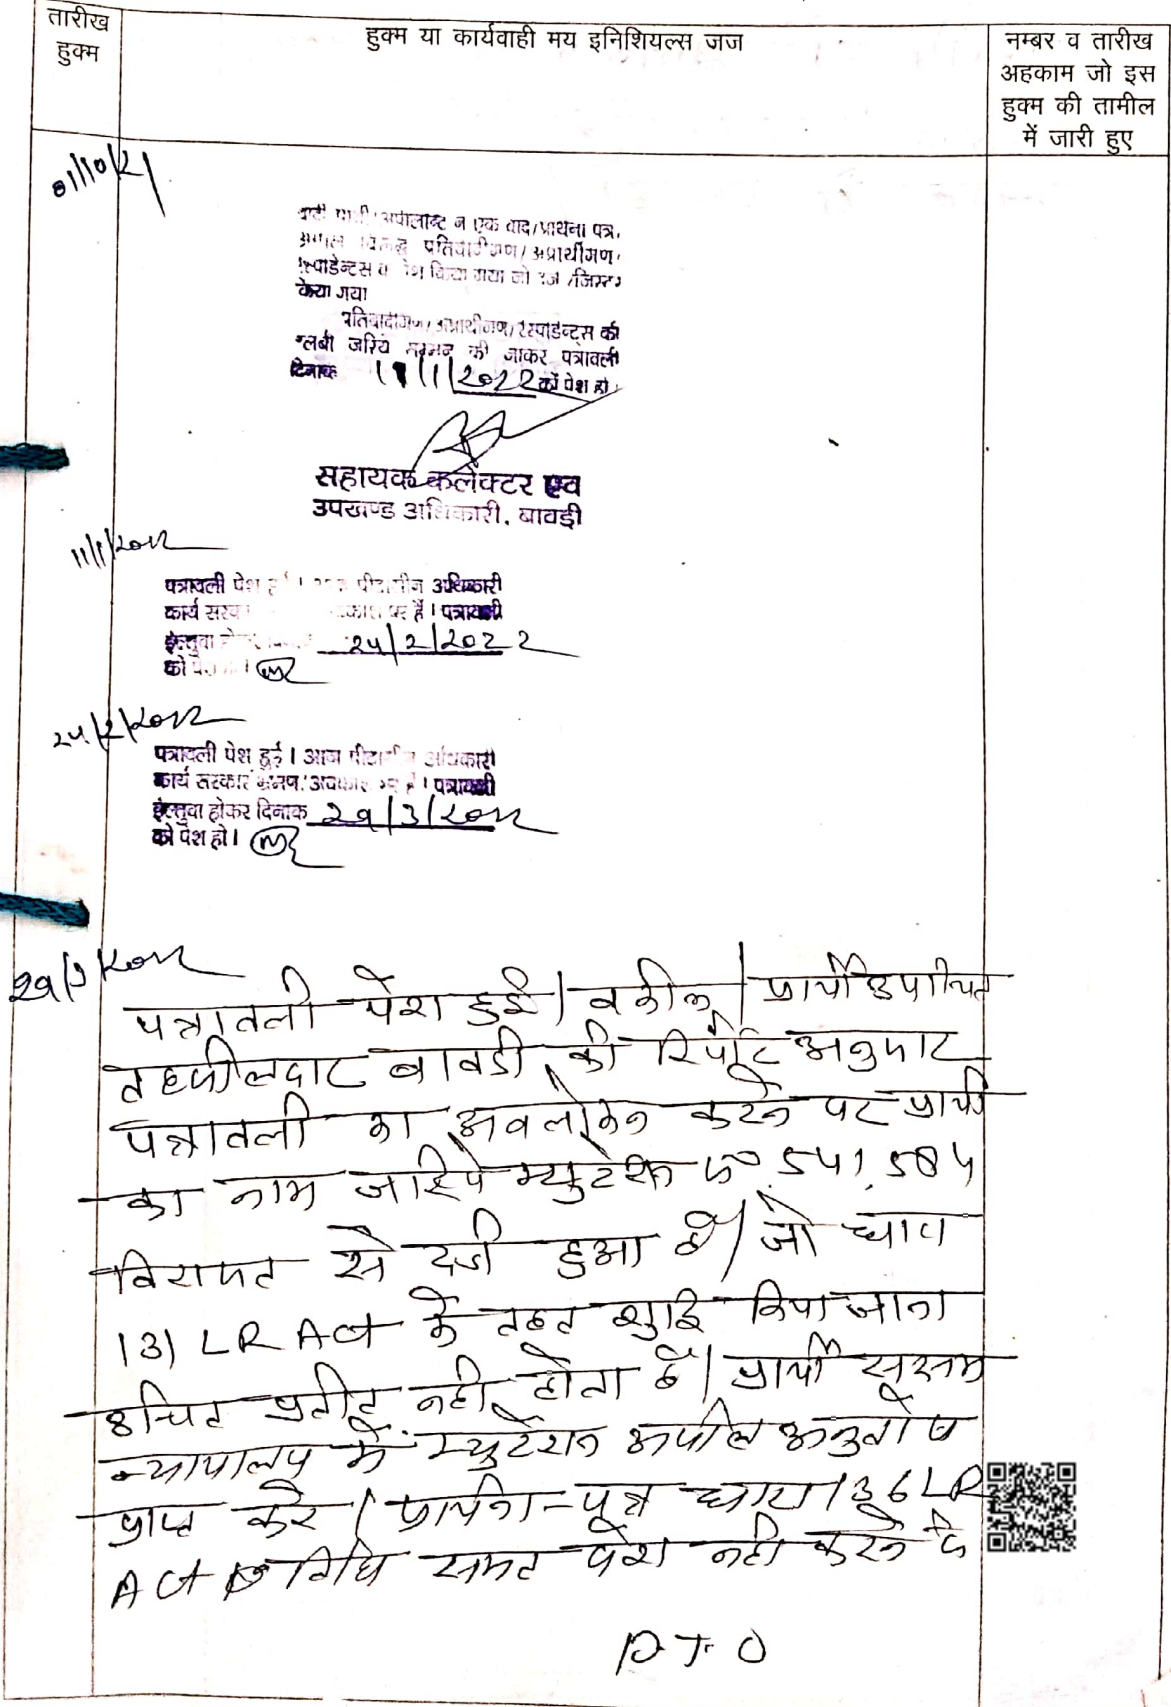 तारीख
हुक्म
हुक्म या कार्यवाही मय इनिशियल्स जज
नम्बर व तारीख
अहकाम जो इस
हुक्म की तामील
में जारी हुए
01/10/21
अपीलान्ट न एक वाद/प्राथना पत्र,
प्रतिवादीगण/अप्रार्थीगण/
किया गया
प्रतिवादीगण/अप्रार्थीगण/रेस्पाडेन्ट्स की
जरिये सम्मन की जाकर पत्रावली
दिनांक 11/1/2022 को पेश हो।
सहायक कलेक्टर एवं
उपखण्ड अधिकारी, बावड़ी
11/1/2022
पत्रावली पेश अधिकारी
कार्य पर है। पत्रावली
24/2/2022
को
24/2/2022
पत्रावली पेश हुई। आज पीठासीन अधिकारी
कार्य सरकार भ्रमण/अवकाश पर है। पत्रावली
ईल्तुवा होकर दिनांक 29/3/2022
को पेश हो।
29/3/2022
पत्रावली पेश हुई। वकील प्रार्थी उपस्थित
तहसीलदार बावडी की रिर्पोट अनुसार
पत्रावली का अवलोकन करने पर प्रार्थी
का नाम जरिये म्युटेशन 541, 584
विरासत से दर्ज हुआ है। जो धारा
131 LR Act के तहत शुद्धि किया जाना
उचित प्रतीत नही होता है। प्रार्थी सक्षम
न्यायालय में म्युटेशन अपील अनुतोष
प्राप्त करे। प्रार्थना-पत्र धारा 136 LR
Act विधि समत पेश नही करने के
P T O